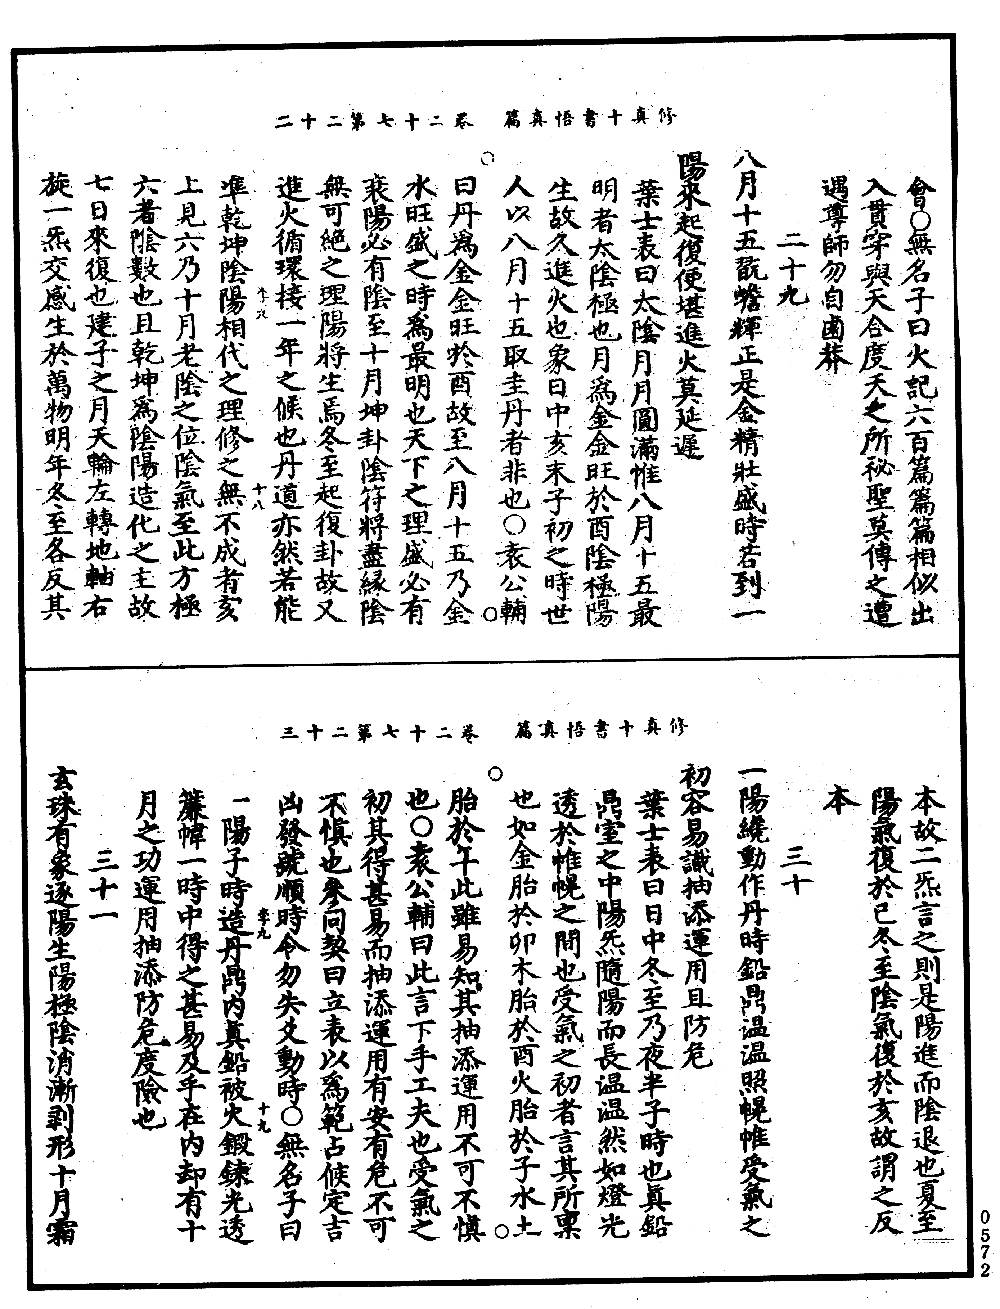 修真十書悟真篇　卷二十七第二十二
會〇無名子曰火記六百篇篇篇相似出
入貫穿與天合度天之所祕聖莫傳之遭
遇尊師勿自鹵莽
二十九
八月十五翫蟾輝正是金精壯盛時若到一
陽來起復便堪進火莫延遲
葉士表曰太陰月月圓滿惟八月十五最
明者太陰極也月為金金旺於酉陰極陽
生故久進火也象曰中亥末子初之時世
人以八月十五取圭丹者非也〇袁公輔
曰丹為金金旺於酉故至八月十五乃金
水旺盛之時為最明也天下之理盛必有
衰陽必有陰至十月坤卦陰符將盡緣陰
無可絕之理陽將生焉冬至起復卦故又
進火循環接一年之候也丹道亦然若能
李六　十八
準乾坤陰陽相代之理修之無不成者亥
上見六乃十月老陰之位陰氣至此方極
六者陰數也且乾坤為陰陽造化之主故
七日來復也建子之月天輪左轉地軸右
旋一炁交感生於萬物明年冬至各反其
修真十書悟真篇　卷二十七第二十三
本故二炁言之則是陽進而陰退也夏至
陽氣復於巳冬至陰氣復於亥故謂之反
本
三十
一陽纔動作丹時鉛鼎溫溫照幌帷受氣之
初容易識抽添運用且防危
葉士表曰日中冬至乃夜半子時也真鉛
鼎室之中陽炁隨陽而長溫溫然如燈光
透於帷幌之間也受氣之初者言其所禀
也如金胎於卯木胎於酉火胎於子水土
胎於午此雖易知其抽添運用不可不慎
也〇袁公輔曰此言下手工夫也受氣之
初其得甚易而抽添運用有安有危不可
不慎也參同契曰立表以為範占候定吉
凶發號順時令勿失爻動時〇無名子曰
李九　十九
一陽子時造丹鼎內真鉛被火鍛鍊光透
簾幃一時中得之甚易及乎在內却有十
月之功運用抽添防危度險也
三十一
玄珠有象逐陽生陽極陰消漸剥形十月霜
0572